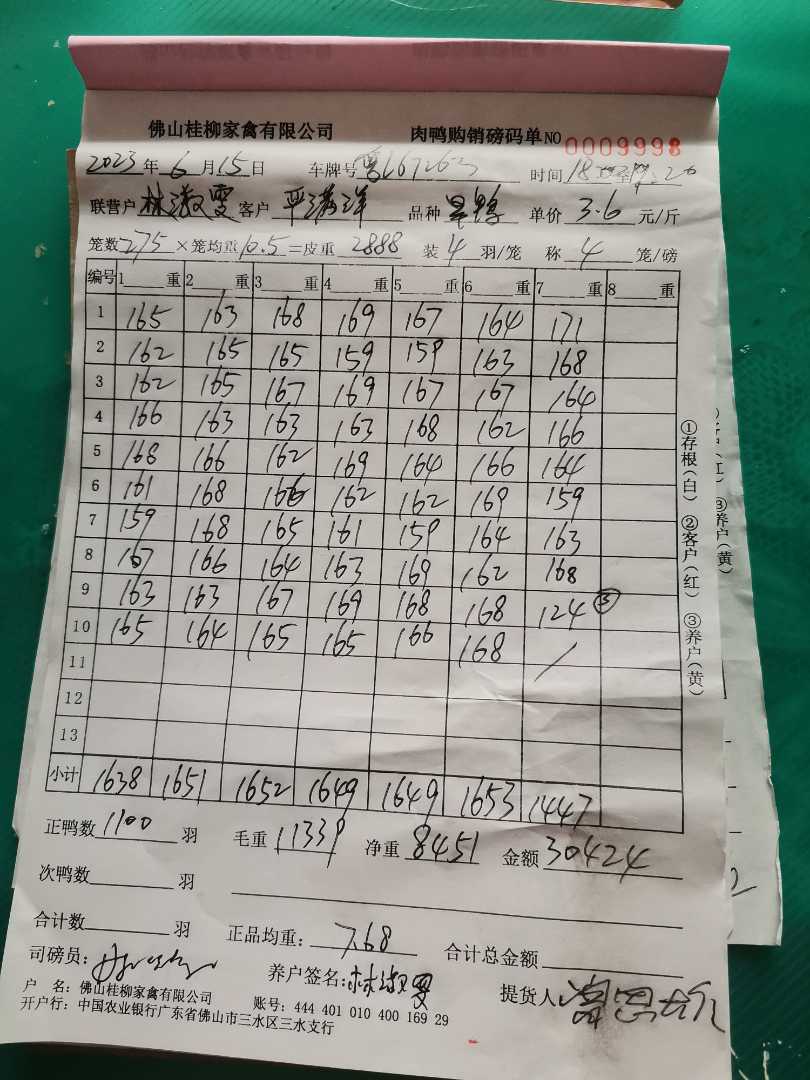 佛山桂柳家禽有限公司 肉鸭购销磅码单 NO 0009998
2023年6月15日 车牌号 时间
联营户 林激雯 客户 平满洋 品种 单价 3.6 元/斤
笼数 275 ×笼均重 10.5 =皮重 2888 装 4 羽/笼 称 4 笼/磅
编号 1 重 2 重 3 重 4 重 5 重 6 重 7 重 8 重
1 165 163 168 169 167 164 171
2 162 165 165 159 159 163 168
3 162 165 167 169 167 167 164
4 166 163 163 163 168 162 166
5 168 166 162 169 164 166 164
6 161 168 166 162 162 169 159
7 159 168 165 161 159 164 163
8 167 166 164 163 169 162 168
9 163 163 167 169 168 168 124 ③
10 165 164 165 165 166 168 /
11
12
13
小计 1638 1651 1652 1649 1649 1653 1447
正鸭数 1100 羽 毛重 11339 净重 8451 金额 30424
次鸭数 羽
合计数 羽 正品均重: 7.68 合计总金额
司磅员: 养户签名: 提货人
户 名: 佛山桂柳家禽有限公司 账号: 444 401 010 400 169 29
开户行: 中国农业银行广东省佛山市三水区三水支行
①存根(白) ②客户(红) ③养户(黄)
③养户(黄)